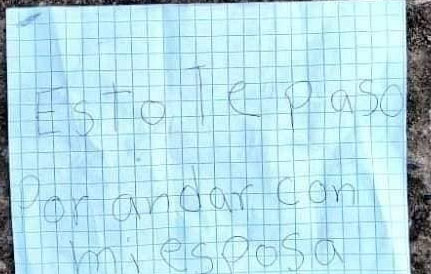 Esto Te paso
Por andar con
mi esposa